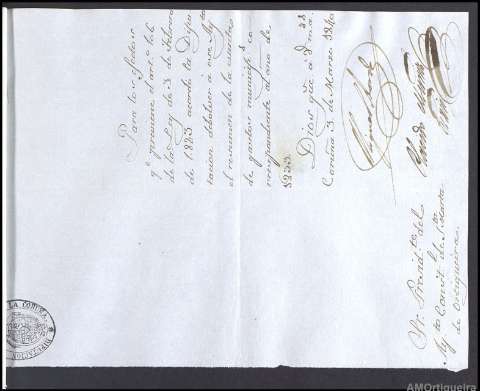 Para los efectos
qᵉ previene el artº 106
de la Ley de 3 de Febrero
de 1823 acordó la Dipu
tación debolver á ese Ayᵗᵒ
el resumen de la cuenta
de gastos municipˢ co
rrespondiente al año de
1839.
Dios gue á V ms. as
Coruña 3 de Marzo 1840
Sr. Presidᵗᵉ del
Ayᵗᵒ Constˡ de Sᵗᵃ Marta
de Ortigueira.
LA CORUÑA
DIPUTACION
AMOrtigueira